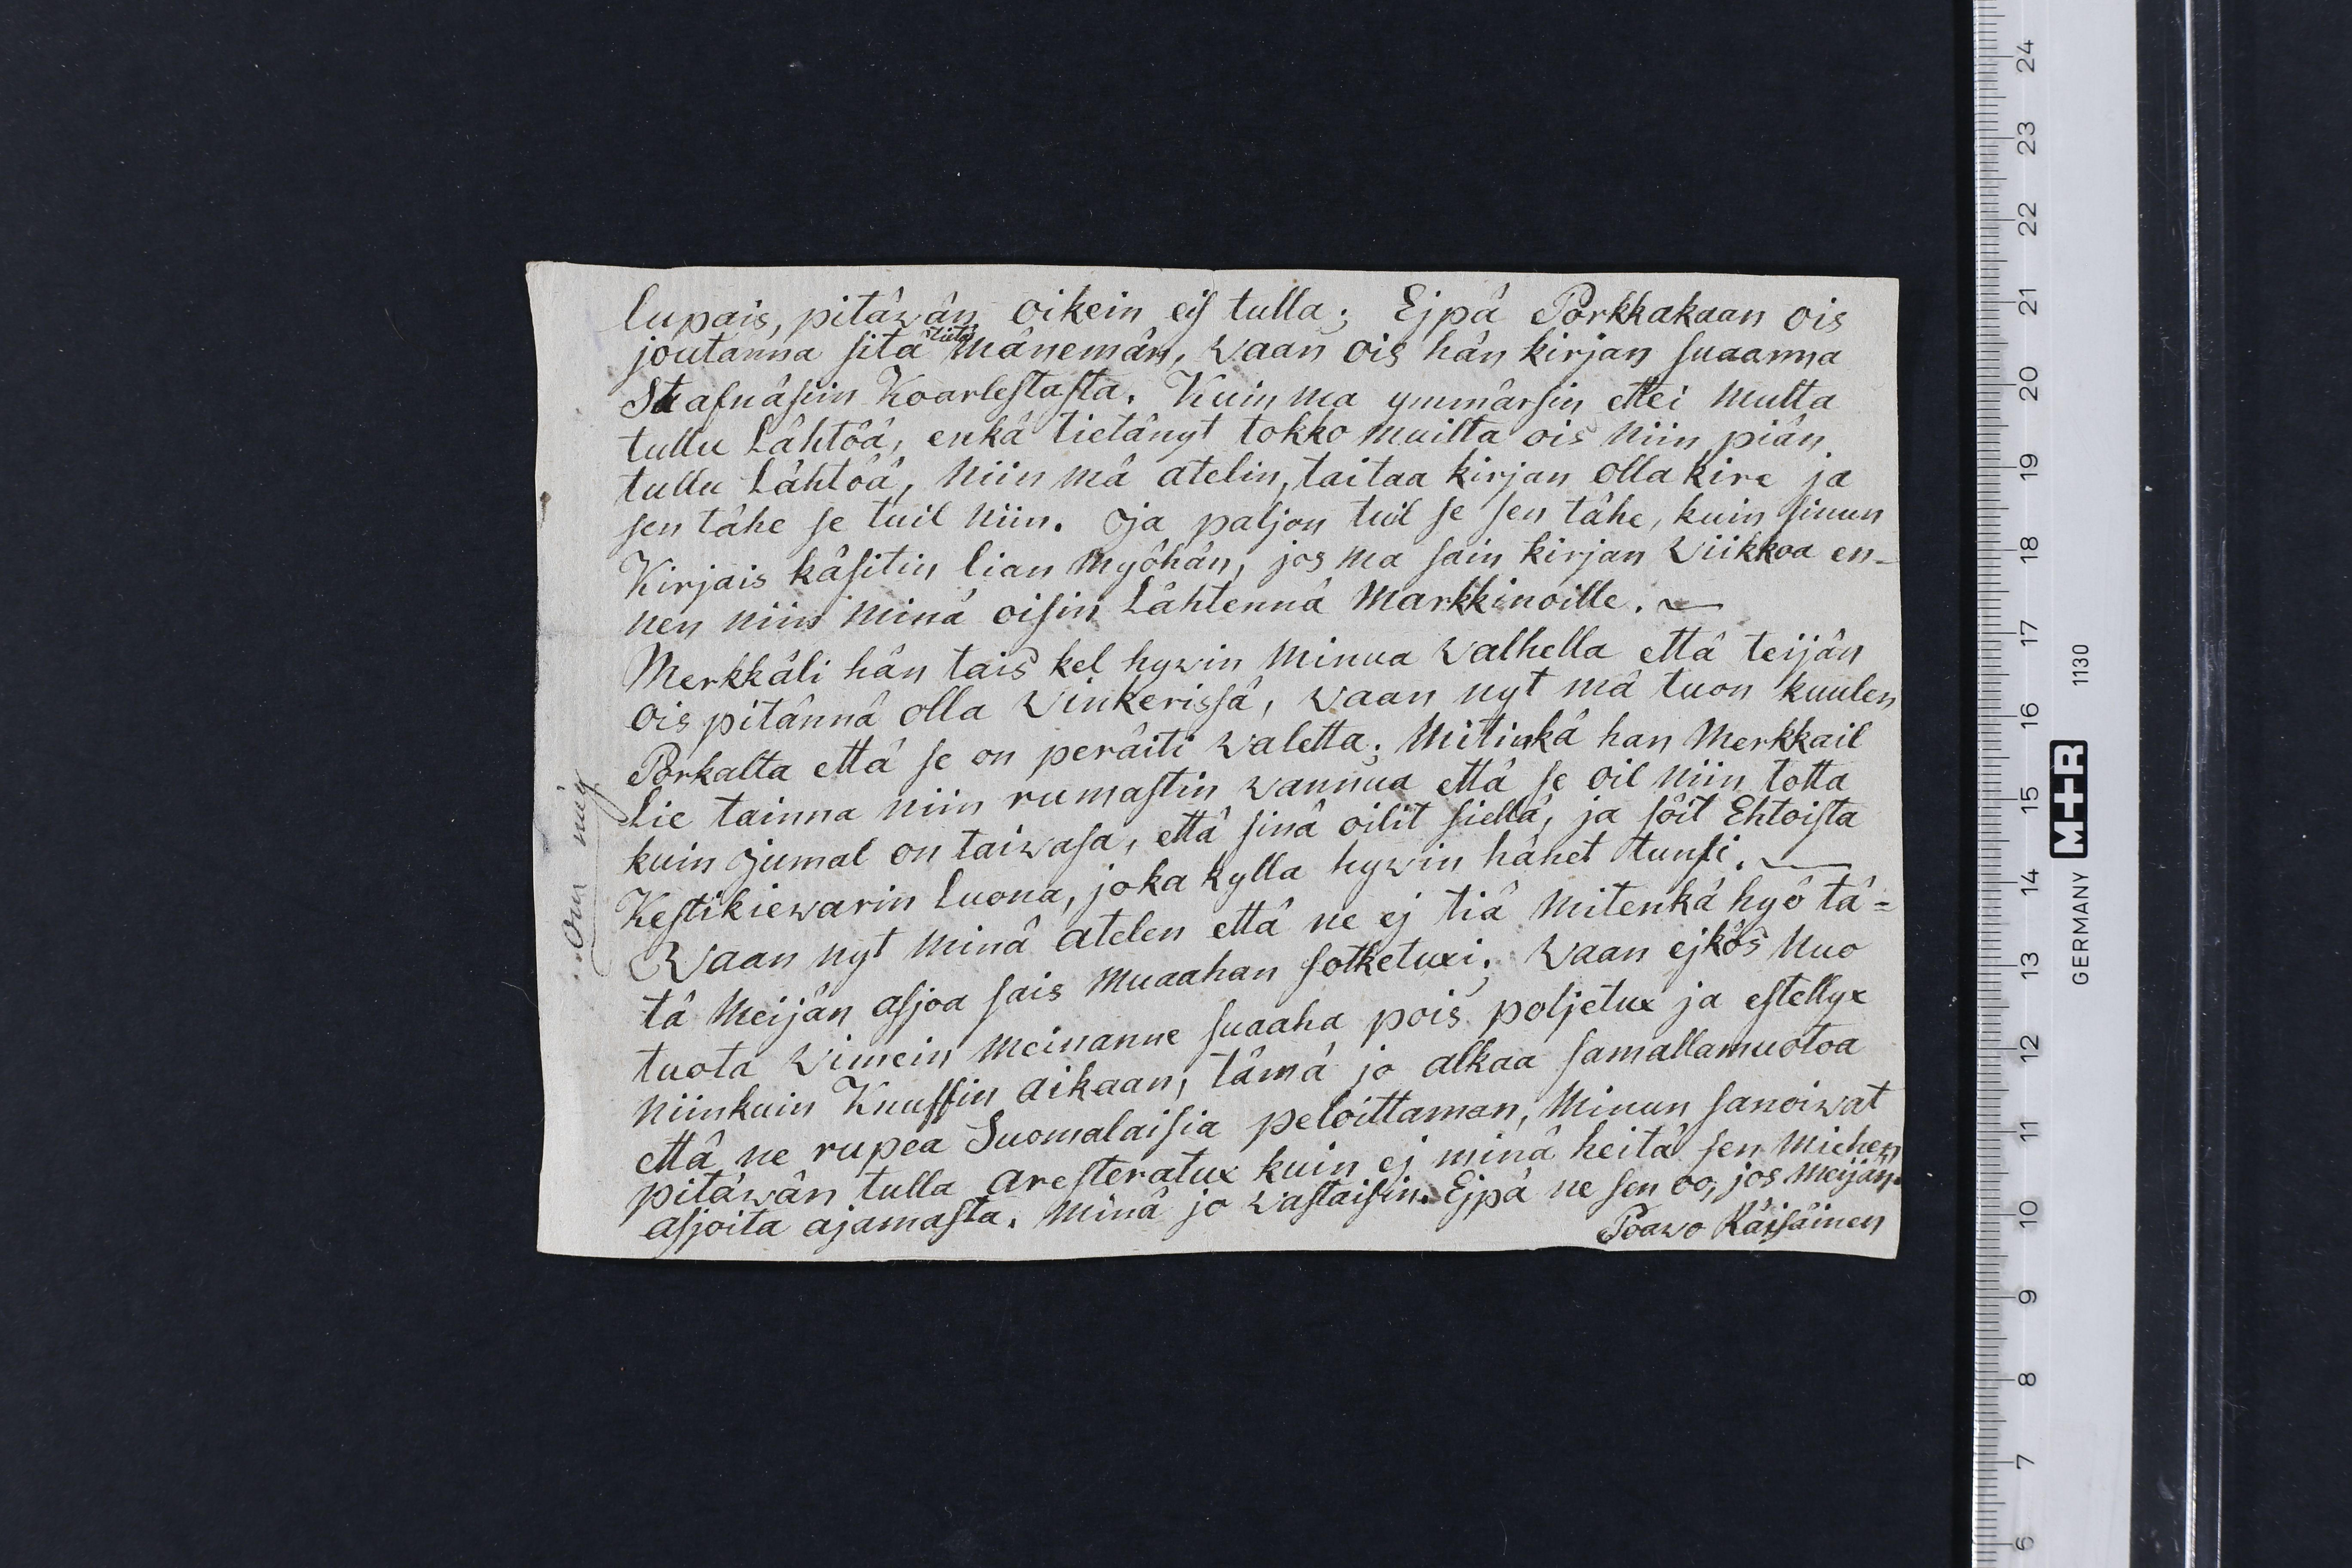 lupais, pitäwän oikein eis tulla; Ejpä Porkkakaan ois
joutanna sitä tietä mänemän, waan ois hän kirjan suaanna
Skafnäsiin Koarlestasta. Kuin ma ymmärsin ettei multa
tullu Lähtöä, enkä tietänyt tokko muilta ois niin piän
tullu Lähtöä, niin mä atelin, taitaa kirjan olla kire ja
sen tähe se tuil niin. Oja paljon tuil se sen tähe, kuin sinun
Kirjais käsitin lian myöhän, jos ma sain kirjan Viikkoa en-
nen niin minä oisin Lähtennä Markkinoille. ~
Merkkäli hän tais kel hywin minua Valhella että teijän
ois pitännä olla Vinkerissä, waan nyt mä tuon kuulen
Porkalta että se on peräiti waletta; Mitinkä han Merkkail
Lie tainna niin rumastin wannua että se oil niin totta
kuin Jumal on taiwasa, että sinä oilit siellä, ja söit Ehtoista
Kestikiewarin luona, joka kylla hywin hänet tunsi. ~
Waan nyt minä atelen että ne ej tiä mitenkä hyö tä=
tä meijän asjoa sais muaahan sotketuxi; waan ejkös nuo
tuota Vimein meinanne suaaha pois poljetux ja estellyx
niinkuin Knussin aikaan, tämä jo alkaa samallamuotoa
että ne rupea Suomalaisia peloittaman, Minun sanoiwat
pitäwän tulla aresteratux kuin ej minä heitä sen miehen
asjoita ajamasta. Minä jo wastaisin. Ejpä ne sen oo, jos meijän.
Poawo Räisäinen
Om mig